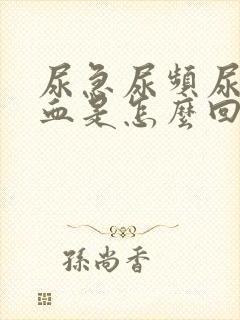 尿急尿頻尿
血是怎麼回
孫尚香